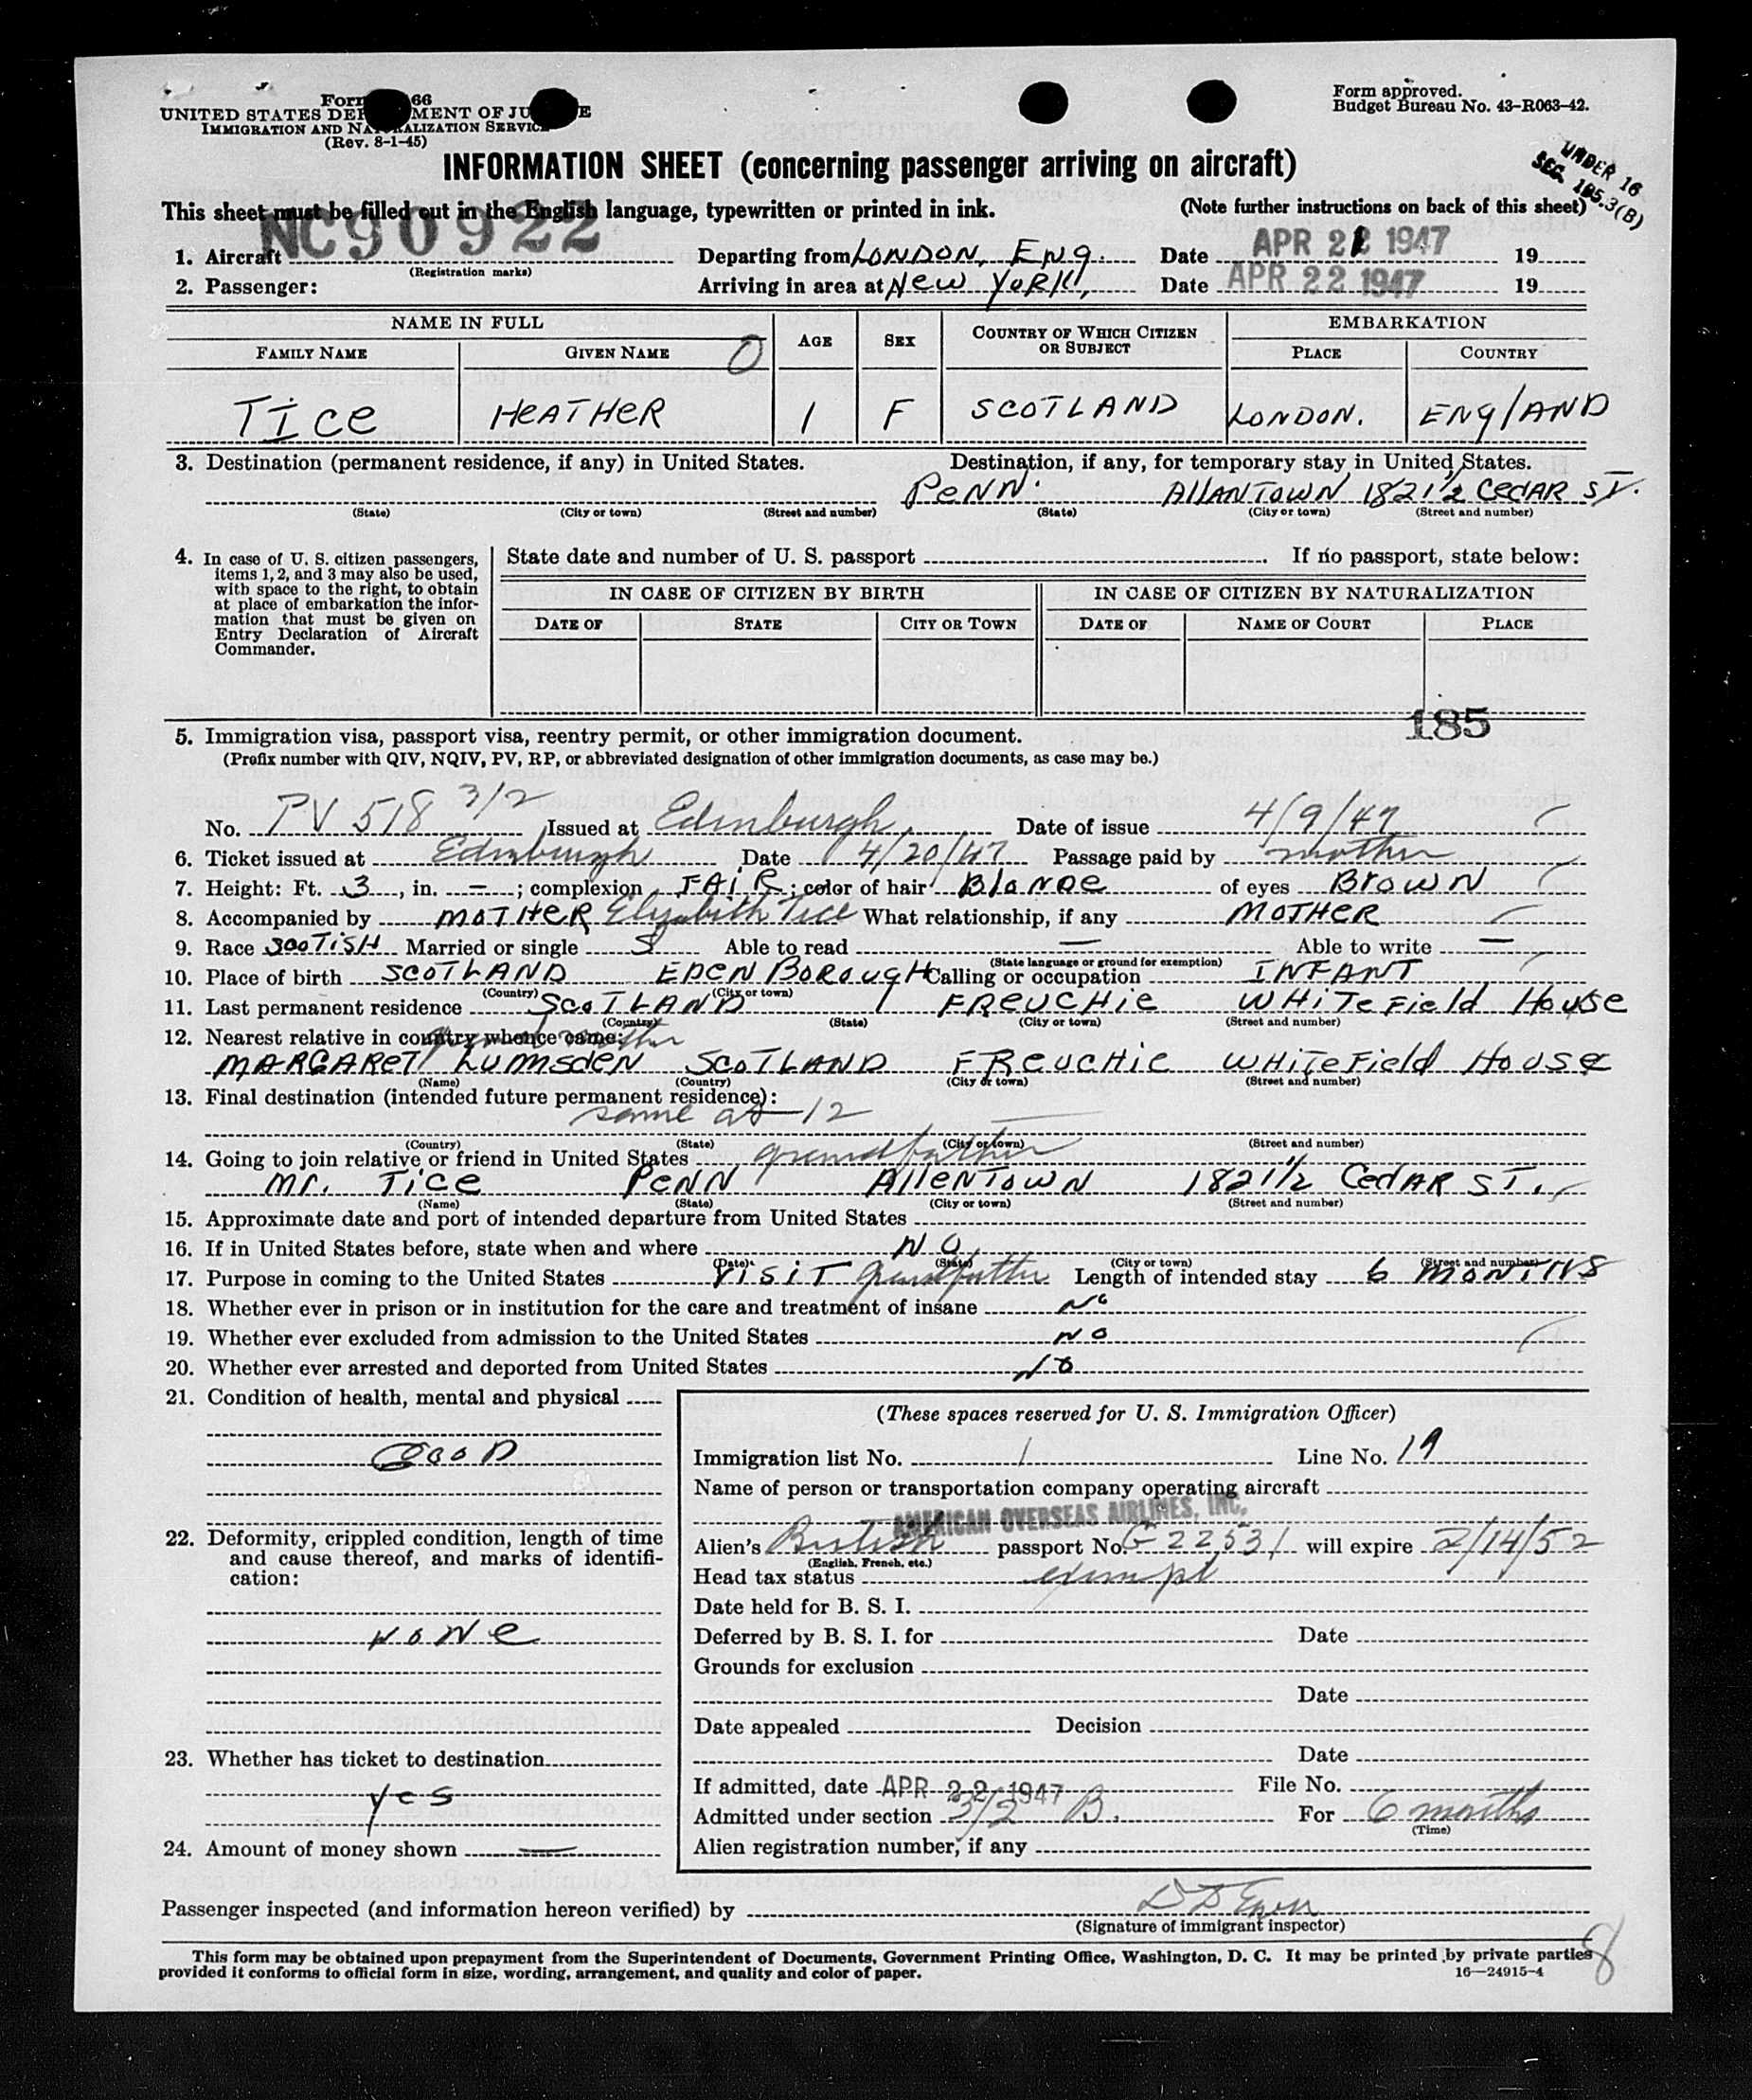 Form 66
UNITED STATES DEP MENT OF JU E
IMMIGRATION AND NATURALIZATION SERVICE
(Rev. 8-1-45)
Form approved.
Budget Bureau No. 43-R063-42.
UNDER 16
SEC. 105.3(B)
INFORMATION SHEET (concerning passenger arriving on aircraft)
This sheet must be filled out in the English language, typewritten or printed in ink. (Note further instructions on back of this sheet)
1. Aircraft NC90922 Departing from LONDON, ENg. Date APR 21 1947 19
(Registration marks)
2. Passenger: Arriving in area at New YORK, Date APR 22 1947 19
NAME IN FULL AGE SEX COUNTRY OF WHICH CITIZEN OR SUBJECT EMBARKATION
FAMILY NAME GIVEN NAME 0 PLACE COUNTRY
TICE HEATHER 1 F SCOTLAND LONDON. ENGLAND
3. Destination (permanent residence, if any) in United States. Destination, if any, for temporary stay in United States.
PENN. AllANTOWN 1821½ CEDAR ST.
(State) (City or town) (Street and number) (State) (City or town) (Street and number)
4. In case of U. S. citizen passengers, items 1, 2, and 3 may also be used, with space to the right, to obtain at place of embarkation the information that must be given on Entry Declaration of Aircraft Commander.
State date and number of U. S. passport If no passport, state below:
IN CASE OF CITIZEN BY BIRTH IN CASE OF CITIZEN BY NATURALIZATION
DATE OF STATE CITY OR TOWN DATE OF NAME OF COURT PLACE
185
5. Immigration visa, passport visa, reentry permit, or other immigration document.
(Prefix number with QIV, NQIV, PV, RP, or abbreviated designation of other immigration documents, as case may be.)
No. PV 518 3/2 Issued at Edinburgh Date of issue 4/9/47
6. Ticket issued at Edinburgh Date 4/20/47 Passage paid by mother
7. Height: Ft. 3, in. —; complexion FAIR; color of hair Blonde of eyes Brown
8. Accompanied by MOTHER Elizabith Tice What relationship, if any MOTHER
9. Race SCOTISH Married or single S Able to read — Able to write —
(State language or ground for exemption)
10. Place of birth SCOTLAND EDEN BOROUGH Calling or occupation INFANT
(Country) (City or town)
11. Last permanent residence SCOTLAND FREUCHIE WHITEFIELD HOUSE
(Country) (State) (City or town) (Street and number)
12. Nearest relative in country whence came: grand mother
MARGARET LUMSDEN SCOTLAND FREUCHIE WHITEFIELD HOUSE
(Name) (Country) (City or town) (Street and number)
13. Final destination (intended future permanent residence):
same as 12
(Country) (State) (City or town) (Street and number)
14. Going to join relative or friend in United States grandfather
Mr. TICE PENN AllENTOWN 1821½ CEDAR ST.
(Name) (State) (City or town) (Street and number)
15. Approximate date and port of intended departure from United States
16. If in United States before, state when and where NO
(Date) (State) (City or town) (Street and number)
17. Purpose in coming to the United States VISIT grandfather Length of intended stay 6 MONTHS
18. Whether ever in prison or in institution for the care and treatment of insane No
19. Whether ever excluded from admission to the United States NO
20. Whether ever arrested and deported from United States NO
21. Condition of health, mental and physical
GOOD
22. Deformity, crippled condition, length of time and cause thereof, and marks of identification:
NONE
23. Whether has ticket to destination
yes
24. Amount of money shown —
(These spaces reserved for U. S. Immigration Officer)
Immigration list No. 1 Line No. 19
Name of person or transportation company operating aircraft
AMERICAN OVERSEAS AIRLINES, INC.
Alien's British passport No. G 22531 will expire 2/14/52
(English, French, etc.)
Head tax status exempt
Date held for B. S. I.
Deferred by B. S. I. for Date
Grounds for exclusion
Date
Date appealed Decision
Date
If admitted, date APR 22 1947 File No.
Admitted under section 3/2 B. For 6 months
(Time)
Alien registration number, if any
Passenger inspected (and information hereon verified) by
(Signature of immigrant inspector)
This form may be obtained upon prepayment from the Superintendent of Documents, Government Printing Office, Washington, D. C. It may be printed by private parties
provided it conforms to official form in size, wording, arrangement, and quality and color of paper. 16—24915-4
8